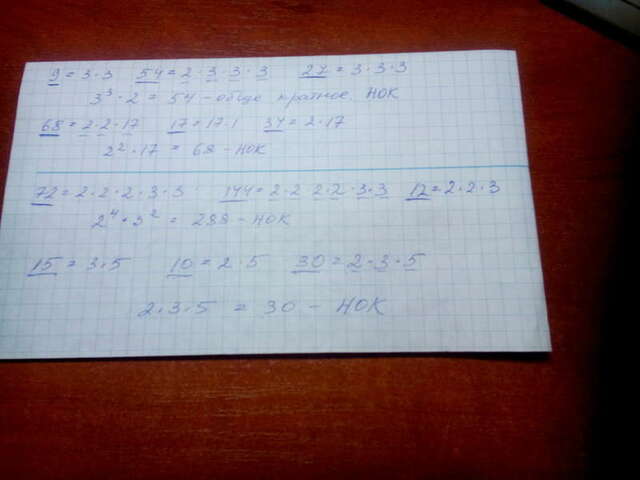 9 = 3·3 54 = 2·3·3·3 27 = 3·3·3
3³·2 = 54 – общее кратное. НОК
68 = 2·2·17 17 = 17·1 34 = 2·17
2²·17 = 68 – НОК
72 = 2·2·2·3·3 144 = 2·2 2·2·3·3 12 = 2·2·3
2⁴·3² = 288 – НОК
15 = 3·5 10 = 2·5 30 = 2·3·5
2·3·5 = 30 – НОК